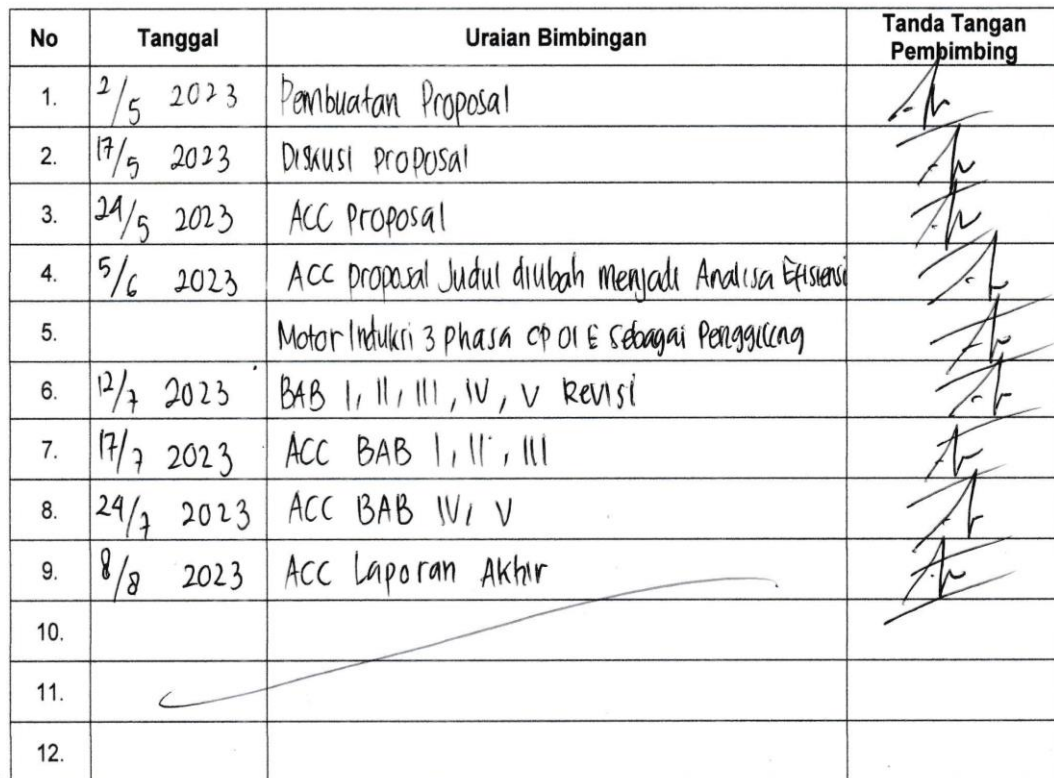 No Tanggal Uraian Bimbingan Tanda Tangan Pembimbing
1. 2/5 2023 Pembuatan Proposal
2. 17/5 2023 Diskusi proposal
3. 24/5 2023 ACC proposal
4. 5/6 2023 ACC proposal Judul diubah menjadi Analisa Efisiensi
5. Motor Induksi 3 phasa CP 01 E sebagai Penggiling
6. 12/7 2023 BAB I, II, III, IV, V Revisi
7. 17/7 2023 ACC BAB I, II, III
8. 24/7 2023 ACC BAB IV, V
9. 8/8 2023 ACC Laporan Akhir
10.
11.
12.